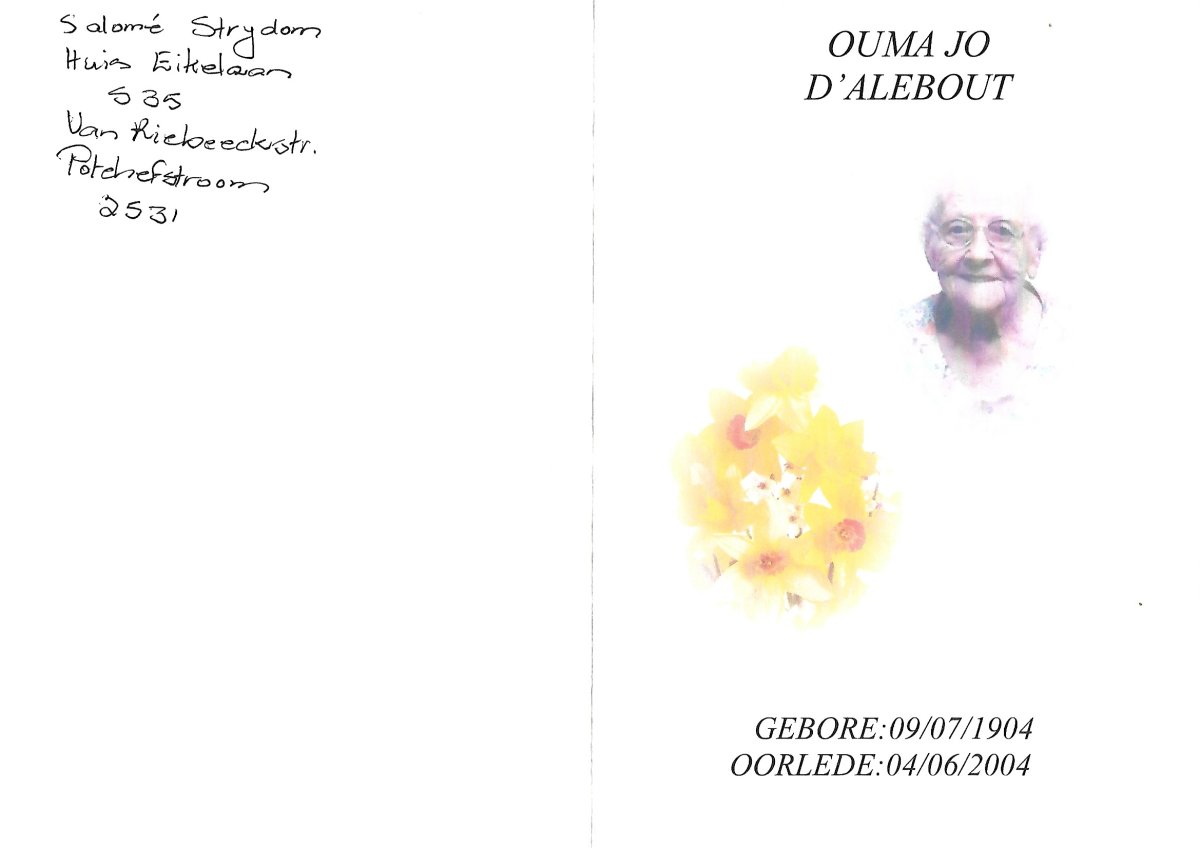 Salomé Strydom
Huis Eikelaan
S 35
Van Riebeeckstr.
Potchefstroom
2531
OUMA JO
D'ALEBOUT
GEBORE:09/07/1904
OORLEDE:04/06/2004